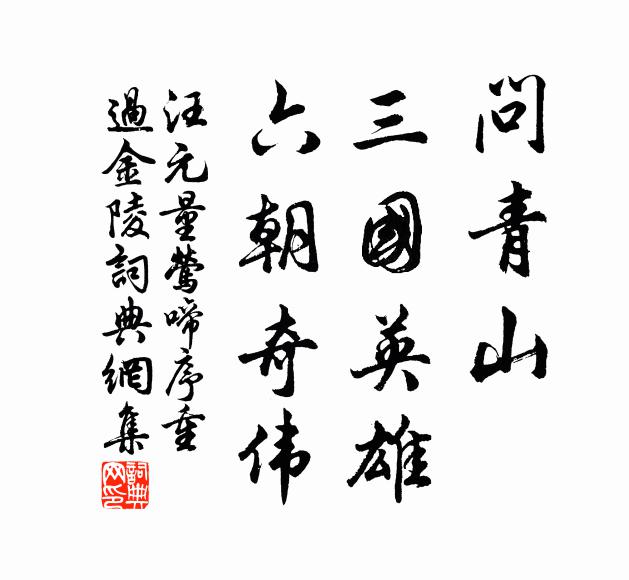 問青山
三國英雄
六朝奇伟
汪元量鶯啼序重
過金陵詞典網集
詞典网印